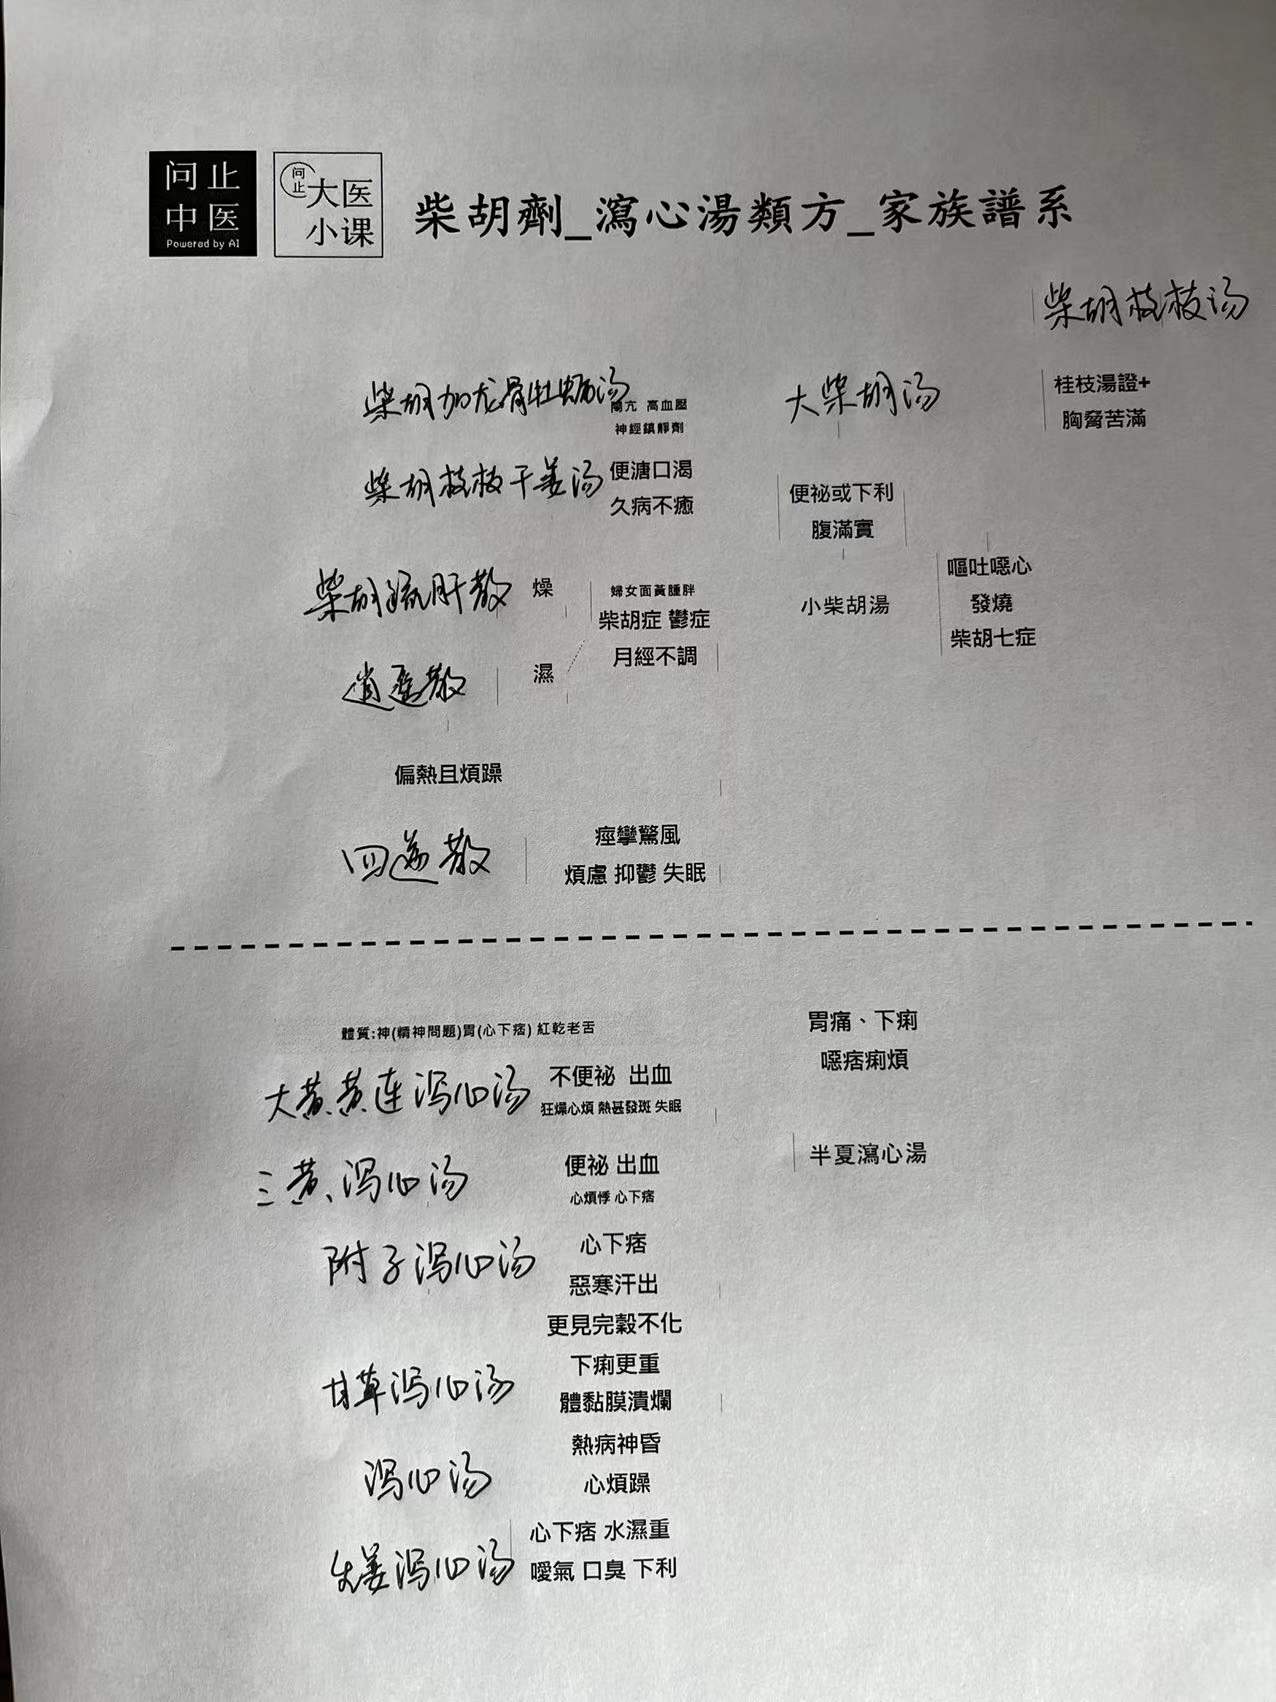 问止
中医
Powered by AI
问止
大医
小课
柴胡劑_瀉心湯類方_家族譜系
柴胡桂枝汤
柴胡加龙骨牡蛎汤
陽亢 高血壓
神經鎮靜劑
大柴胡汤
桂枝湯證+
胸脅苦滿
柴胡桂枝干姜汤
便溏口渴
久病不癒
便祕或下利
腹滿實
嘔吐噁心
發燒
柴胡七症
小柴胡湯
柴胡疏肝散
燥
婦女面黃腫胖
柴胡症 鬱症
月經不調
逍遥散
濕
偏熱且煩躁
四逆散
痙攣驚風
煩慮 抑鬱 失眠
體質:神(精神問題)胃(心下痞) 紅乾老舌
胃痛、下痢
噁痞痢煩
大黄黄连泻心汤
不便祕 出血
狂燥心煩 熱甚發斑 失眠
半夏瀉心湯
三黄泻心汤
便祕 出血
心煩悸 心下痞
附子泻心汤
心下痞
惡寒汗出
更見完穀不化
甘草泻心汤
下痢更重
體黏膜潰爛
泻心汤
熱病神昏
心煩躁
生姜泻心汤
心下痞 水濕重
噯氣 口臭 下利